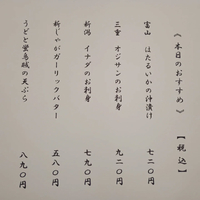 《本日のおすすめ》 【税込】
富山 ほたるいかの沖漬け 七二〇円
三重 オジサンのお刺身 九二〇円
新潟 イナダのお刺身 七九〇円
新じゃがガーリックバター 五八〇円
うどと蛍烏賊の天ぷら 八九〇円